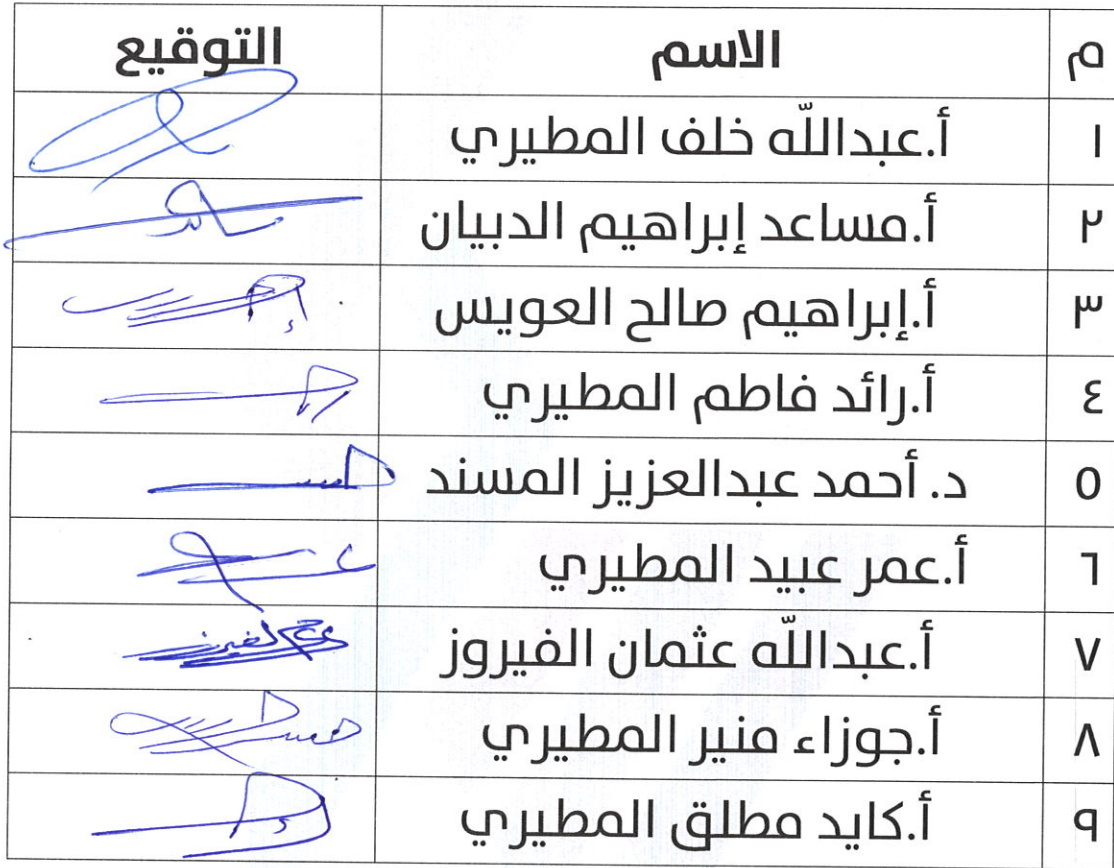 م الاسم التوقيع
١ أ.عبدالله خلف المطيري
٢ أ.مساعد إبراهيم الدبيان
٣ أ.إبراهيم صالح العويس
٤ أ.رائد فاطم المطيري
٥ د. أحمد عبدالعزيز المسند
٦ أ.عمر عبيد المطيري
٧ أ.عبدالله عثمان الفيروز
٨ أ.جوزاء منير المطيري
٩ أ.كايد مطلق المطيري